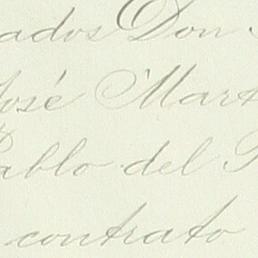 ados Don
José Mart
Pablo del P
contrato